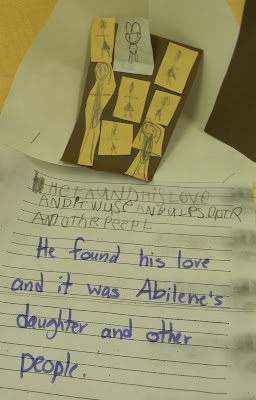 HE FAUND HIS LOVE
AND
AND OTHE PEEPL
He found his love
and it was Abilene's
daughter and other
people.